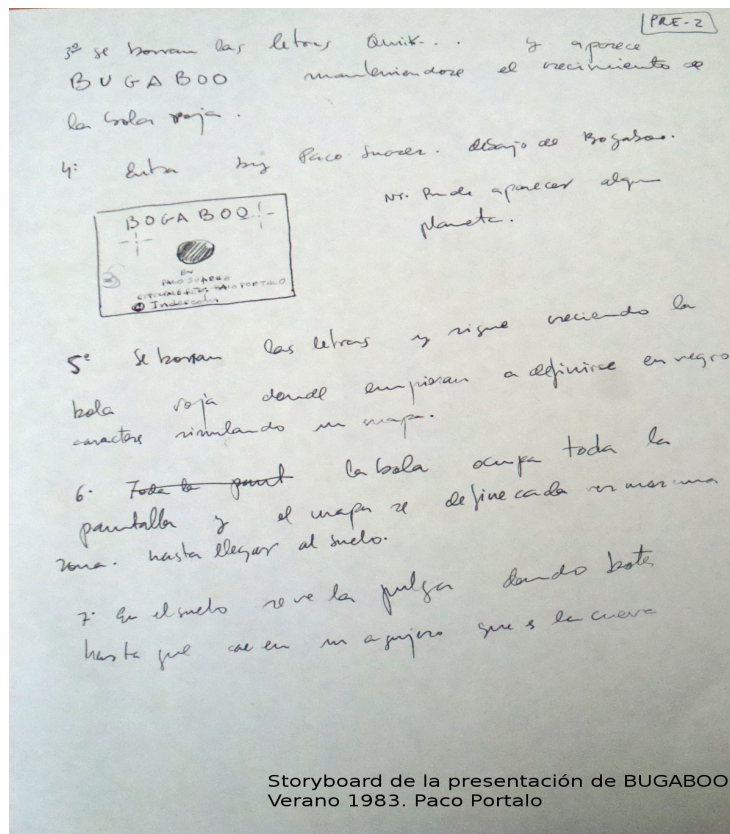 PRE-2
3º se borran las letras Quik... y aparece
BUGABOO manteniendose el crecimiento de
la bola roja.
4: Entra by Paco Suarez. debajo de Bogaboo.
Puede aparecer algun
planeta.
BOGABOO
PACO SUAREZ
PACO PORTALO
Indescomp
5º Se borran las letras y sigue creciendo la
bola roja donde empiezan a definirse en negro
caracteres simulando un mapa.
6. Toda la pant la bola ocupa toda la
pantalla y el mapa se define cada vez mas una
zona. hasta llegar al suelo.
7. En el suelo se ve la pulga dando botes
hasta que cae en un agujero que es la cueva
Storyboard de la presentación de BUGABOO
Verano 1983. Paco Portalo